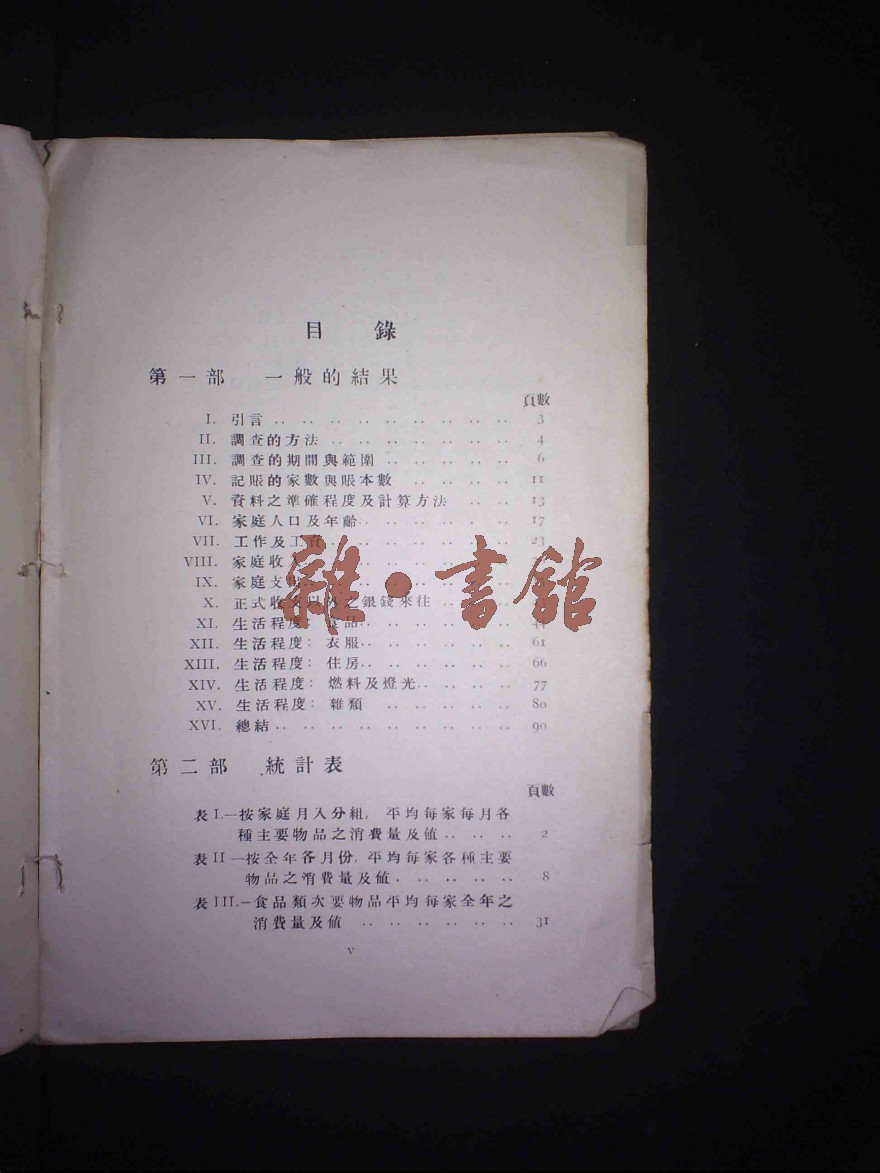 目 錄
第一部 一般的結果
頁數
I. 引言 .. .. .. .. .. .. .. .. .. 3
II. 調查的方法 .. .. .. .. .. .. .. 4
III. 調查的期間與範圍 .. .. .. .. .. 6
IV. 記賬的家數與賬本數 .. .. .. .. 11
V. 資料之準確程度及計算方法 .. .. 13
VI. 家庭人口及年齡.. .. .. .. .. .. 17
VII. 工作及工資 .. .. .. .. .. .. 23
VIII. 家庭收
IX. 家庭支
X. 正式收支以外之銀錢來往 ..
XI. 生活程度: 食品 .. .. .. .. .. 44
XII. 生活程度: 衣服.. .. .. .. .. .. 61
XIII. 生活程度: 住房.. .. .. .. .. .. 66
XIV. 生活程度: 燃料及燈光.. .. .. .. 77
XV. 生活程度: 雜類 .. .. .. .. .. 80
XVI. 總結.. .. .. .. .. .. .. .. .. 90
第二部 統計表
頁數
表 I.—按家庭月入分組, 平均每家每月各
種主要物品之消費量及值.. .. .. 2
表 II—按全年各月份, 平均每家各種主要
物品之消費量及值. .. .. .. .. 8
表 III.—食品類次要物品平均每家全年之
消費量及值 .. .. .. .. .. .. 31
v
雜·書館